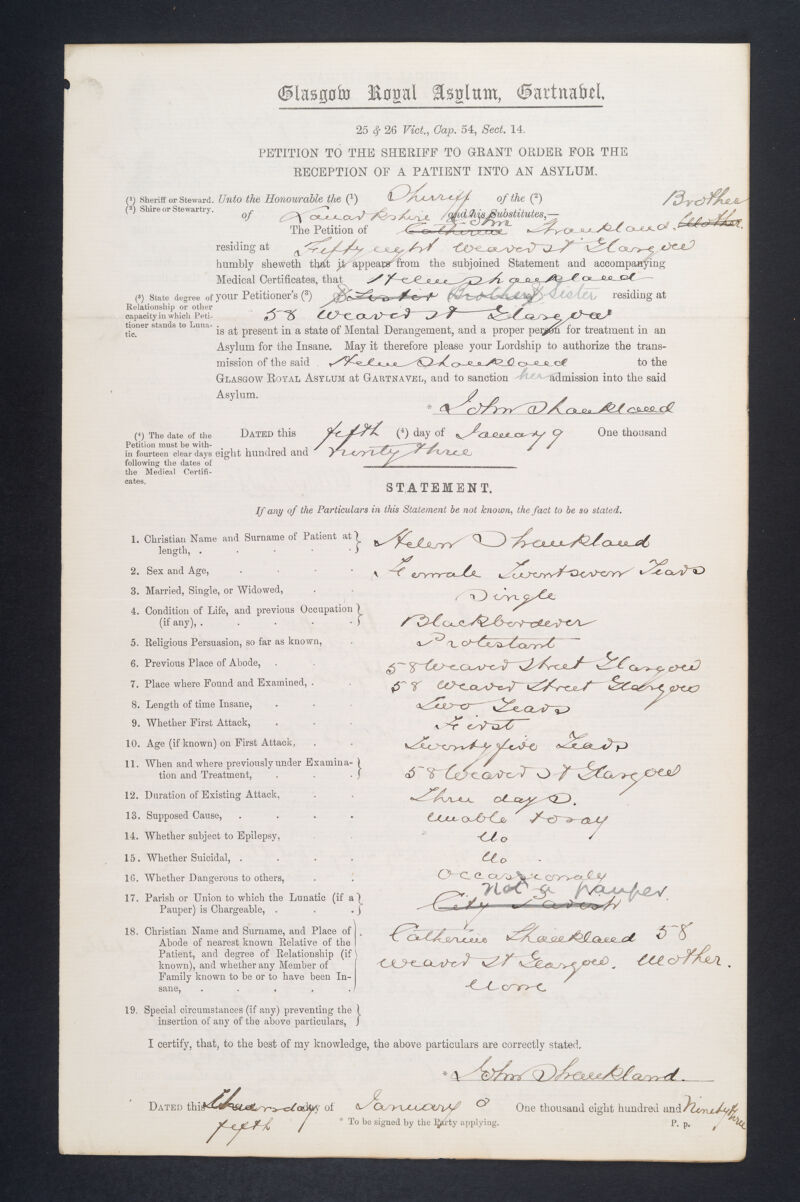 Glasgow Royal Asylum, Gartnavel.
25 & 26 Vict., Cap. 54, Sect. 14.
PETITION TO THE SHERIFF TO GRANT ORDER FOR THE
RECEPTION OF A PATIENT INTO AN ASYLUM.
(1) Sheriff or Steward.
(2) Shire or Stewartry.
Unto the Honourable the (1) Sherriff of the (2)
of Lanarkshire and his Substitutes,— Brother
The Petition of Catherine John Shankland. Mother.
residing at Fifty eight Weaver St Glasgow
humbly sheweth that it appears from the subjoined Statement and accompanying
Medical Certificates, that Helen Shankland
(3) State degree of Relationship or other capacity in which Petitioner stands to Lunatic.
your Petitioner's (3) Sister Brother Sister residing at
58 Weaver St Glasgow
is at present in a state of Mental Derangement, and a proper person for treatment in an
Asylum for the Insane. May it therefore please your Lordship to authorize the trans-
mission of the said Helen Shankland to the
GLASGOW ROYAL ASYLUM at GARTNAVEL, and to sanction her admission into the said
Asylum.
* John Shankland
(4) The date of the Petition must be within fourteen clear days following the dates of the Medical Certificates.
DATED this fifth (4) day of January One thousand
eight hundred and ninty three
STATEMENT.
If any of the Particulars in this Statement be not known, the fact to be so stated.
1. Christian Name and Surname of Patient at length, . Helen Shankland
2. Sex and Age, Female Twentseven Years
3. Married, Single, or Widowed, Single
4. Condition of Life, and previous Occupation (if any), . Blackborderer
5. Religious Persuasion, so far as known, Protestant
6. Previous Place of Abode, . 58 Weaver Street Glasgow
7. Place where Found and Examined, . 58 Weaver Street Glasgow
8. Length of time Insane, Two Years
9. Whether First Attack, First
10. Age (if known) on First Attack, Twentyfive Years
11. When and where previously under Examination and Treatment, 58 Weaver St Glasgow
12. Duration of Existing Attack, Three days.
13. Supposed Cause, unable to say
14. Whether subject to Epilepsy, No
15. Whether Suicidal, . No
16. Whether Dangerous to others, occassionaly
17. Parish or Union to which the Lunatic (if a Pauper) is Chargeable, . City Parish Not a pauper.
18. Christian Name and Surname, and Place of Abode of nearest known Relative of the Patient, and degree of Relationship (if known), and whether any Member of Family known to be or to have been Insane, . Catherine Shankland 58
Weaver St Glasgow. Mother.
None
19. Special circumstances (if any) preventing the insertion of any of the above particulars,
I certify, that, to the best of my knowledge, the above particulars are correctly stated.
* John Shankland.
DATED this Thursday day of January One thousand eight hundred and Ninety three
fifth
* To be signed by the Party applying.
P. p.